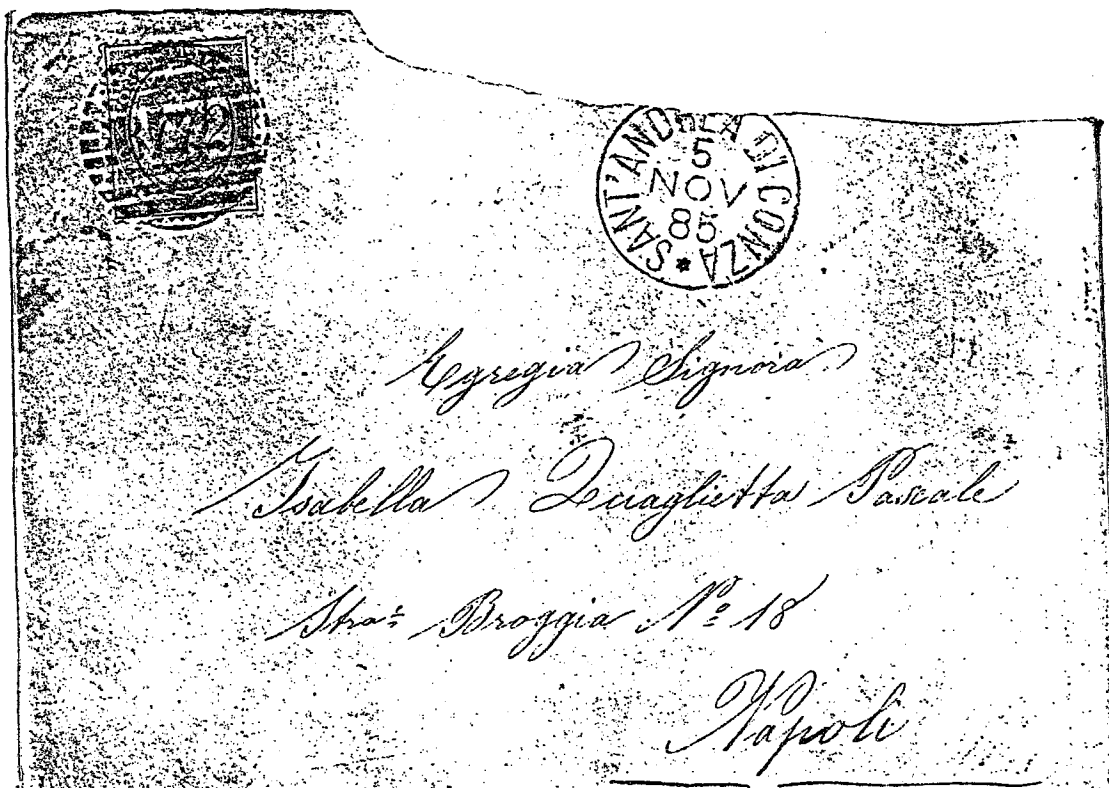 SANT'ANDREA DI CONZA
5
NOV
85
Egregia Signora
Isabella Quaglietta Pascale
Stra: Broggia Nº 18
Napoli